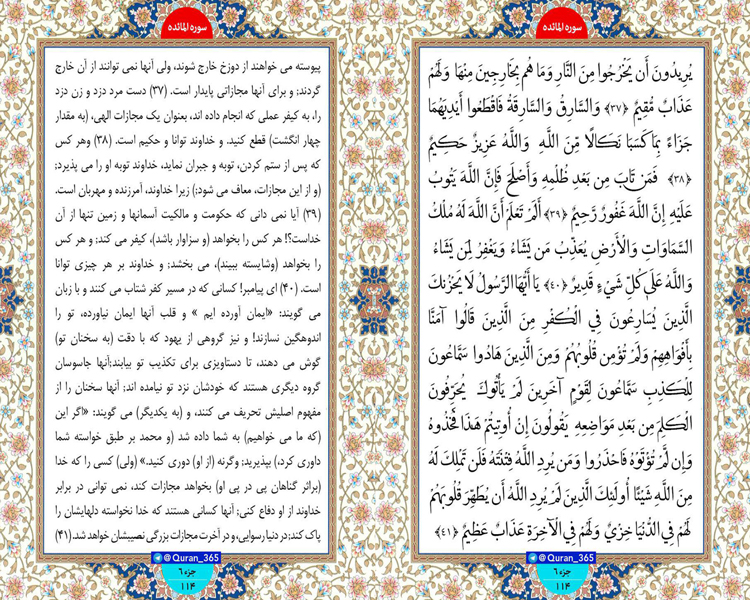 سوره المائده
يُرِيدُونَ أَن يَخْرُجُوا مِنَ النَّارِ وَمَا هُم بِخَارِجِينَ مِنْهَا وَلَهُمْ
عَذَابٌ مُّقِيمٌ ﴿۳۷﴾ وَالسَّارِقُ وَالسَّارِقَةُ فَاقْطَعُوا أَيْدِيَهُمَا
جَزَاءً بِمَا كَسَبَا نَكَالًا مِّنَ اللَّهِ وَاللَّهُ عَزِيزٌ حَكِيمٌ
﴿۳۸﴾ فَمَن تَابَ مِن بَعْدِ ظُلْمِهِ وَأَصْلَحَ فَإِنَّ اللَّهَ يَتُوبُ
عَلَيْهِ إِنَّ اللَّهَ غَفُورٌ رَّحِيمٌ ﴿۳۹﴾ أَلَمْ تَعْلَمْ أَنَّ اللَّهَ لَهُ مُلْكُ
السَّمَاوَاتِ وَالْأَرْضِ يُعَذِّبُ مَن يَشَاءُ وَيَغْفِرُ لِمَن يَشَاءُ
وَاللَّهُ عَلَى كُلِّ شَيْءٍ قَدِيرٌ ﴿۴۰﴾ يَا أَيُّهَا الرَّسُولُ لَا يَحْزُنكَ
الَّذِينَ يُسَارِعُونَ فِي الْكُفْرِ مِنَ الَّذِينَ قَالُوا آمَنَّا
بِأَفْوَاهِهِمْ وَلَمْ تُؤْمِن قُلُوبُهُمْ وَمِنَ الَّذِينَ هَادُوا سَمَّاعُونَ
لِلْكَذِبِ سَمَّاعُونَ لِقَوْمٍ آخَرِينَ لَمْ يَأْتُوكَ يُحَرِّفُونَ
الْكَلِمَ مِن بَعْدِ مَوَاضِعِهِ يَقُولُونَ إِنْ أُوتِيتُمْ هَذَا فَخُذُوهُ
وَإِن لَّمْ تُؤْتَوْهُ فَاحْذَرُوا وَمَن يُرِدِ اللَّهُ فِتْنَتَهُ فَلَن تَمْلِكَ لَهُ
مِنَ اللَّهِ شَيْئًا أُولَئِكَ الَّذِينَ لَمْ يُرِدِ اللَّهُ أَن يُطَهِّرَ قُلُوبَهُمْ
لَهُمْ فِي الدُّنْيَا خِزْيٌ وَلَهُمْ فِي الْآخِرَةِ عَذَابٌ عَظِيمٌ ﴿۴۱﴾
@Quran_365
جزء ۶
۱۱۴
سوره المائده
پیوسته می خواهند از دوزخ خارج شوند، ولی آنها نمی توانند از آن خارج
گردند؛ و برای آنها مجازاتی پایدار است. (۳۷) دست مرد دزد و زن دزد
را، به کیفر عملی که انجام داده اند، بعنوان یک مجازات الهی، (به مقدار
چهار انگشت) قطع کنید. و خداوند توانا و حکیم است. (۳۸) وهر کس
که پس از ستم کردن، توبه و جبران نماید، خداوند توبه او را می پذیرد؛
(و از این مجازات، معاف می شود؛) زیرا خداوند، آمرزنده و مهربان است.
(۳۹) آیا نمی دانی که حکومت و مالکیت آسمانها و زمین تنها از آن
خداست؟! هر کس را بخواهد (و سزاوار باشد)، کیفر می کند؛ و هر کس
را بخواهد (وشایسته ببیند)، می بخشد؛ و خداوند بر هر چیزی توانا
است. (۴۰) ای پیامبر! کسانی که در مسیر کفر شتاب می کنند و با زبان
می گویند: «ایمان آورده ایم » و قلب آنها ایمان نیاورده، تو را
اندوهگین نسازند! و نیز گروهی از یهود که با دقت (به سخنان تو)
گوش می دهند، تا دستاویزی برای تکذیب تو بیابند؛آنها جاسوسان
گروه دیگری هستند که خودشان نزد تو نیامده اند، آنها سخنان را از
مفهوم اصلیش تحریف می کنند، و (به یکدیگر) می گویند: «اگر این
(که ما می خواهیم) به شما داده شد (و محمد بر طبق خواسته شما
داوری کرد،) بپذیرید، وگرنه (از او) دوری کنید.» (ولی) کسی را که خدا
(براثر گناهان پی در پی او) بخواهد مجازات کند، نمی توانی در برابر
خداوند از او دفاع کنی؛ آنها کسانی هستند که خدا نخواسته دلهایشان را
پاک کند؛ در دنیا رسوایی، و در آخرت مجازات بزرگی نصیبشان خواهد شد. (۴۱)
@Quran_365
جزء ۶
۱۱۴